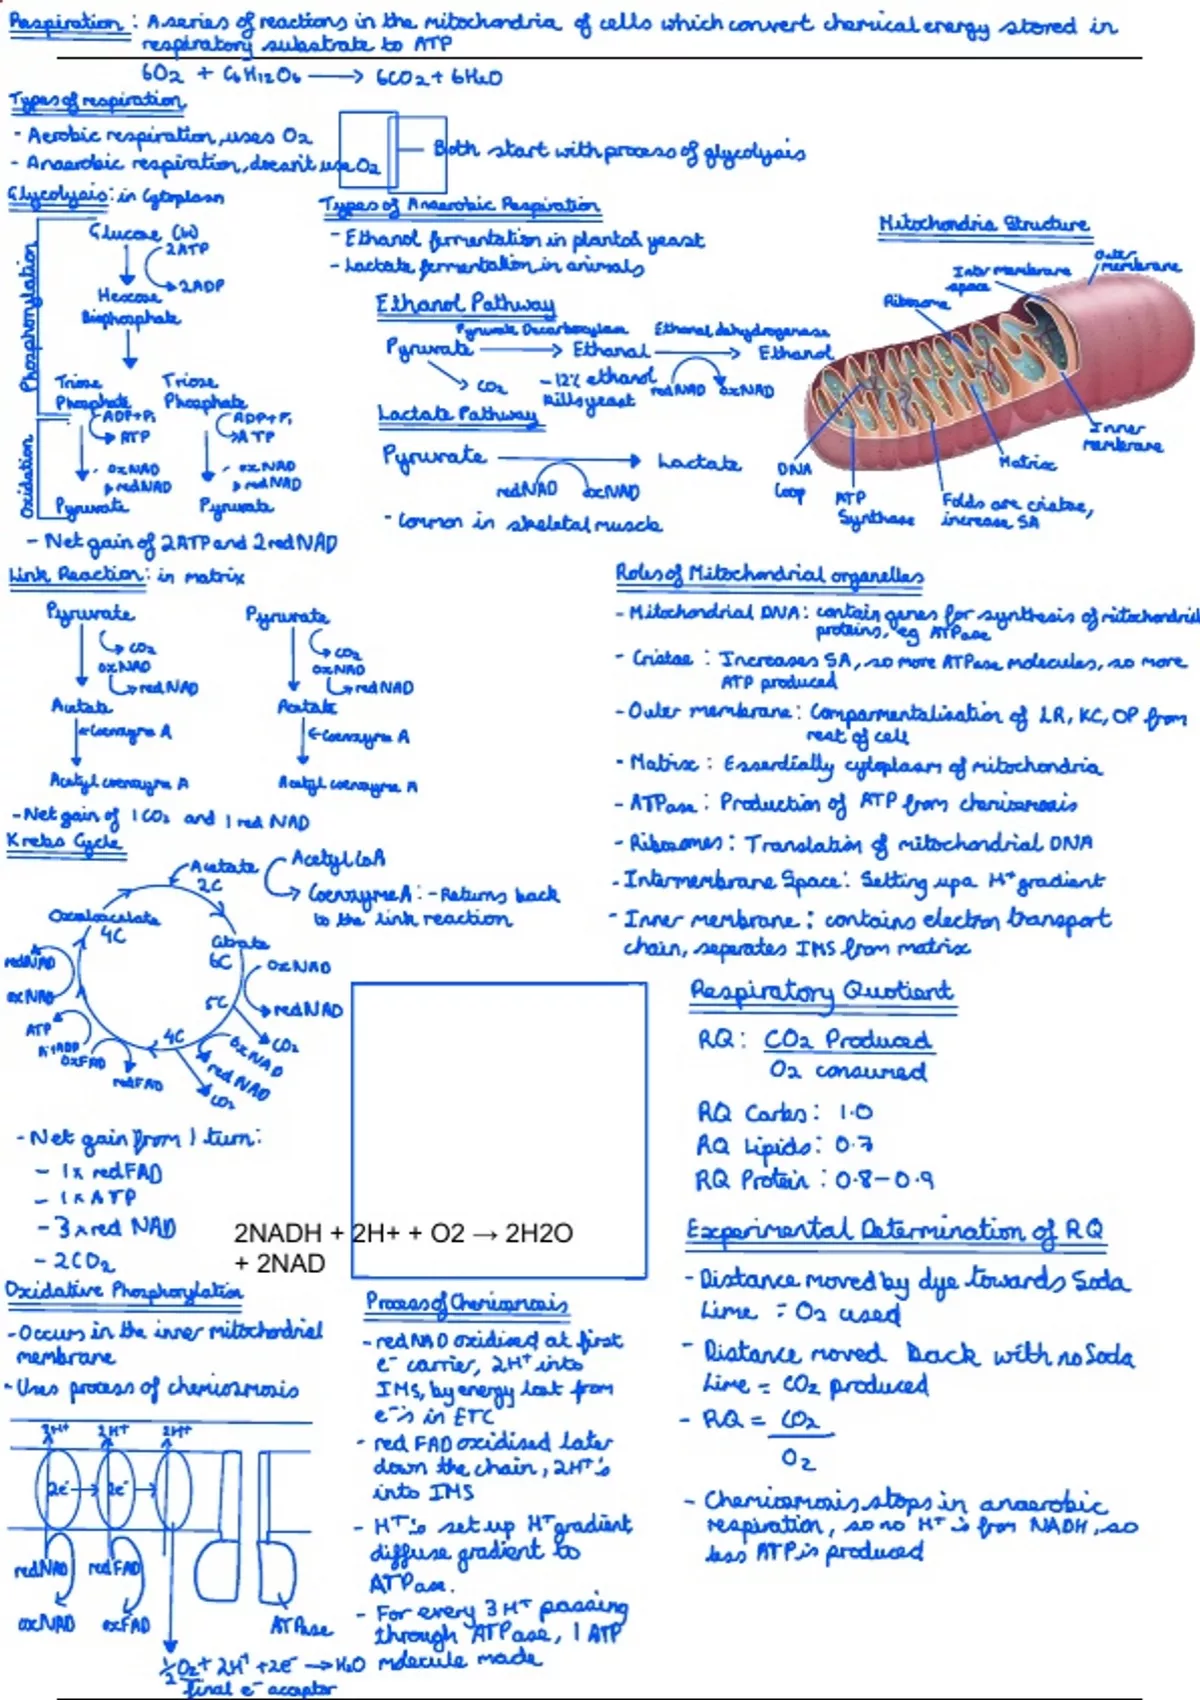 Respiration : A series of reactions in the mitochondria of cells which convert chemical energy stored in
respiratory substrate to ATP
6O2 + C6H12O6 → 6CO2 + 6H2O
Types of respiration
- Aerobic respiration, uses O2
- Anaerobic respiration, doesn't use O2
Both start with process of glycolysis
Glycolysis: in Cytoplasm
Phosphorylation
Glucose (6C)
2ATP
2ADP
Hexose
Bisphosphate
Triose Phosphate
Triose Phosphate
ADP+Pi
ATP
ADP+Pi
ATP
Oxidation
oxNAD
redNAD
oxNAD
redNAD
Pyruvate
Pyruvate
- Net gain of 2ATP and 2redNAD
Types of Anaerobic Respiration
- Ethanol fermentation in plants & yeast
- Lactate fermentation in animals
Ethanol Pathway
Pyruvate Decarboxylase
Ethanal dehydrogenase
Pyruvate → Ethanal → Ethanol
CO2
- 12% ethanol
kills yeast
redNAD
oxNAD
Lactate Pathway
Pyruvate → Lactate
redNAD
oxNAD
- Common in skeletal muscle
Mitochondria Structure
Outer
membrane
Inter membrane
space
Ribosome
Inner
membrane
Matrix
DNA
Loop
ATP
Synthase
Folds are cristae,
increase SA
Link Reaction: in matrix
Pyruvate
Pyruvate
CO2
oxNAD
redNAD
CO2
oxNAD
redNAD
Acetate
Acetate
Coenzyme A
Coenzyme A
Acetyl coenzyme A
Acetyl coenzyme A
- Net gain of 1 CO2 and 1 red NAD
Roles of Mitochondrial organelles
- Mitochondrial DNA: contain genes for synthesis of mitochondrial
proteins, eg ATPase
- Cristae : Increases SA, so more ATPase molecules, so more
ATP produced
- Outer membrane: Compartmentalisation of LR, KC, OP from
rest of cell
- Matrix : Essentially cytoplasm of mitochondria
- ATPase : Production of ATP from chemiosmosis
- Ribosomes : Translation of mitochondrial DNA
- Intermembrane Space: Setting up a H+ gradient
- Inner membrane : contains electron transport
chain, seperates IMS from matrix
Krebs Cycle
Acetate
2C
Acetyl CoA
Coenzyme A : - Returns back
to the link reaction
Oxaloacetate
4C
Citrate
6C
oxNAD
redNAD
5C
CO2
oxNAD
redNAD
4C
CO2
oxFAD
redFAD
ATP
redNAD
oxNAD
- Net gain from 1 turn:
- 1x redFAD
- 1x ATP
- 3x red NAD
- 2CO2
2NADH + 2H+ + O2 → 2H2O
+ 2NAD
Respiratory Quotient
RQ: CO2 Produced
O2 consumed
RQ Carbs: 1.0
RQ Lipids: 0.7
RQ Protein : 0.8-0.9
Experimental Determination of RQ
- Distance moved by dye towards Soda
Lime = O2 used
- Distance moved back with no Soda
Lime = CO2 produced
- RQ = CO2
O2
- Chemiosmosis stops in anaerobic
respiration, so no H+'s from NADH, so
less ATP is produced
Oxidative Phosphorylation
- Occurs in the inner mitochondrial
membrane
- Uses process of chemiosmosis
2H+
2H+
2H+
2e-
2e-
redNAD
redFAD
oxNAD
oxFAD
ATPase
½O2 + 2H+ + 2e- → H2O
final e- acceptor
Process of Chemiosmosis
- redNAD oxidised at first
e- carrier, 2H+ into
IMS, by energy lost from
e-'s in ETC
- red FAD oxidised later
down the chain, 2H+'s
into IMS
- H+'s set up H+ gradient
diffuse gradient to
ATPase.
- For every 3 H+ passing
through ATPase, 1 ATP
molecule made